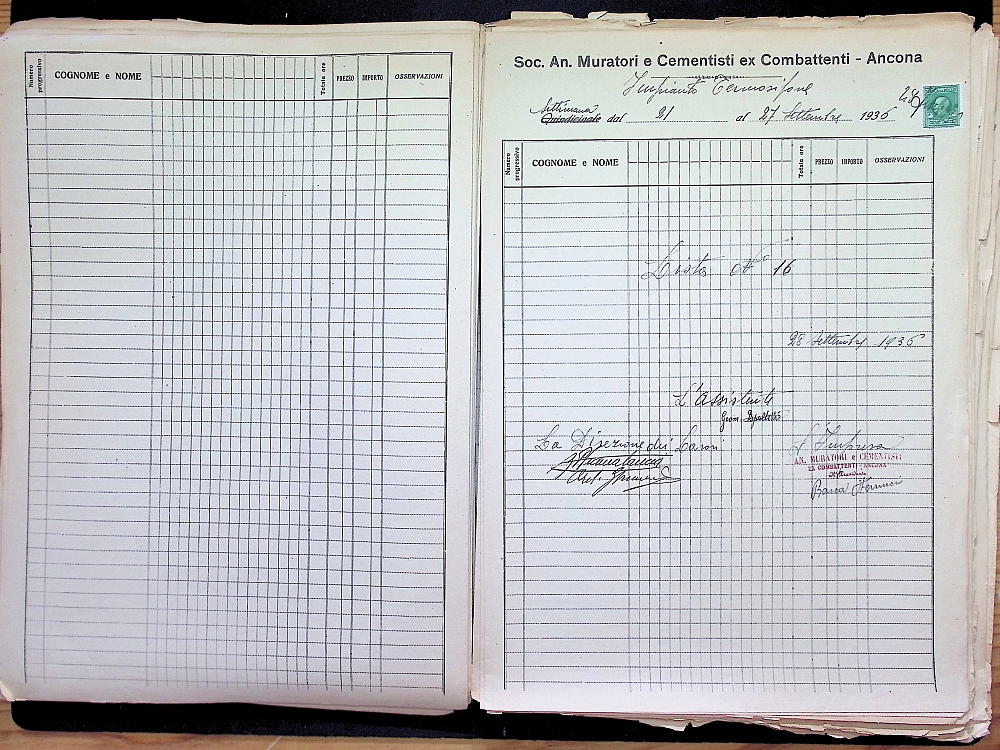 Numero progressivo COGNOME e NOME Totale ore PREZZO IMPORTO OSSERVAZIONI
Soc. An. Muratori e Cementisti ex Combattenti - Ancona
Impianto Termosifone
Settimana
Quindicinale dal 21 al 27 Settembre 1936
Numero progressivo COGNOME e NOME Totale ore PREZZO IMPORTO OSSERVAZIONI
Lista N° 16
28 Settembre 1936
L'Assistente
Geom.
La Direzione dei Lavori
L'Impresa
AN. MURATORI e CEMENTISTI
EX COMBATTENTI - ANCONA
Il Presidente